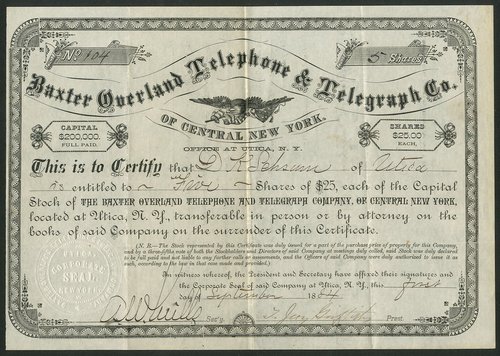 No 104
5 Shares
Baxter Overland Telephone & Telegraph Co.
OF CENTRAL NEW YORK.
OFFICE AT UTICA, N. Y.
CAPITAL
$200,000.
FULL PAID.
SHARES
$25.00
EACH,
This is to Certify that D. of Utica
is entitled to ~ Five ~ Shares of $25, each of the Capital
Stock of THE BAXTER OVERLAND TELEPHONE AND TELEGRAPH COMPANY, OF CENTRAL NEW YORK,
located at Utica, N. Y., transferable in person or by attorney on the
books of said Company on the surrender of this Certificate.
(N. B.—The Stock represented by this Certificate was duly issued for a part of the purchase price of property for this Company,
and by a three-fifths vote of both the Stockholders and Directors of said Company at meetings duly called, said Stock was duly declared
to be full paid and not liable to any further calls or assessments, and the Officers of said Company were duly authorized to issue it as
such, according to the law in that case made and provided.)
In witness whereof, the President and Secretary have affixed their signatures and
the Corporate Seal of said Company at Utica, N. Y., this first
day of September 1884
Sec'y.
Prest.
SEAL